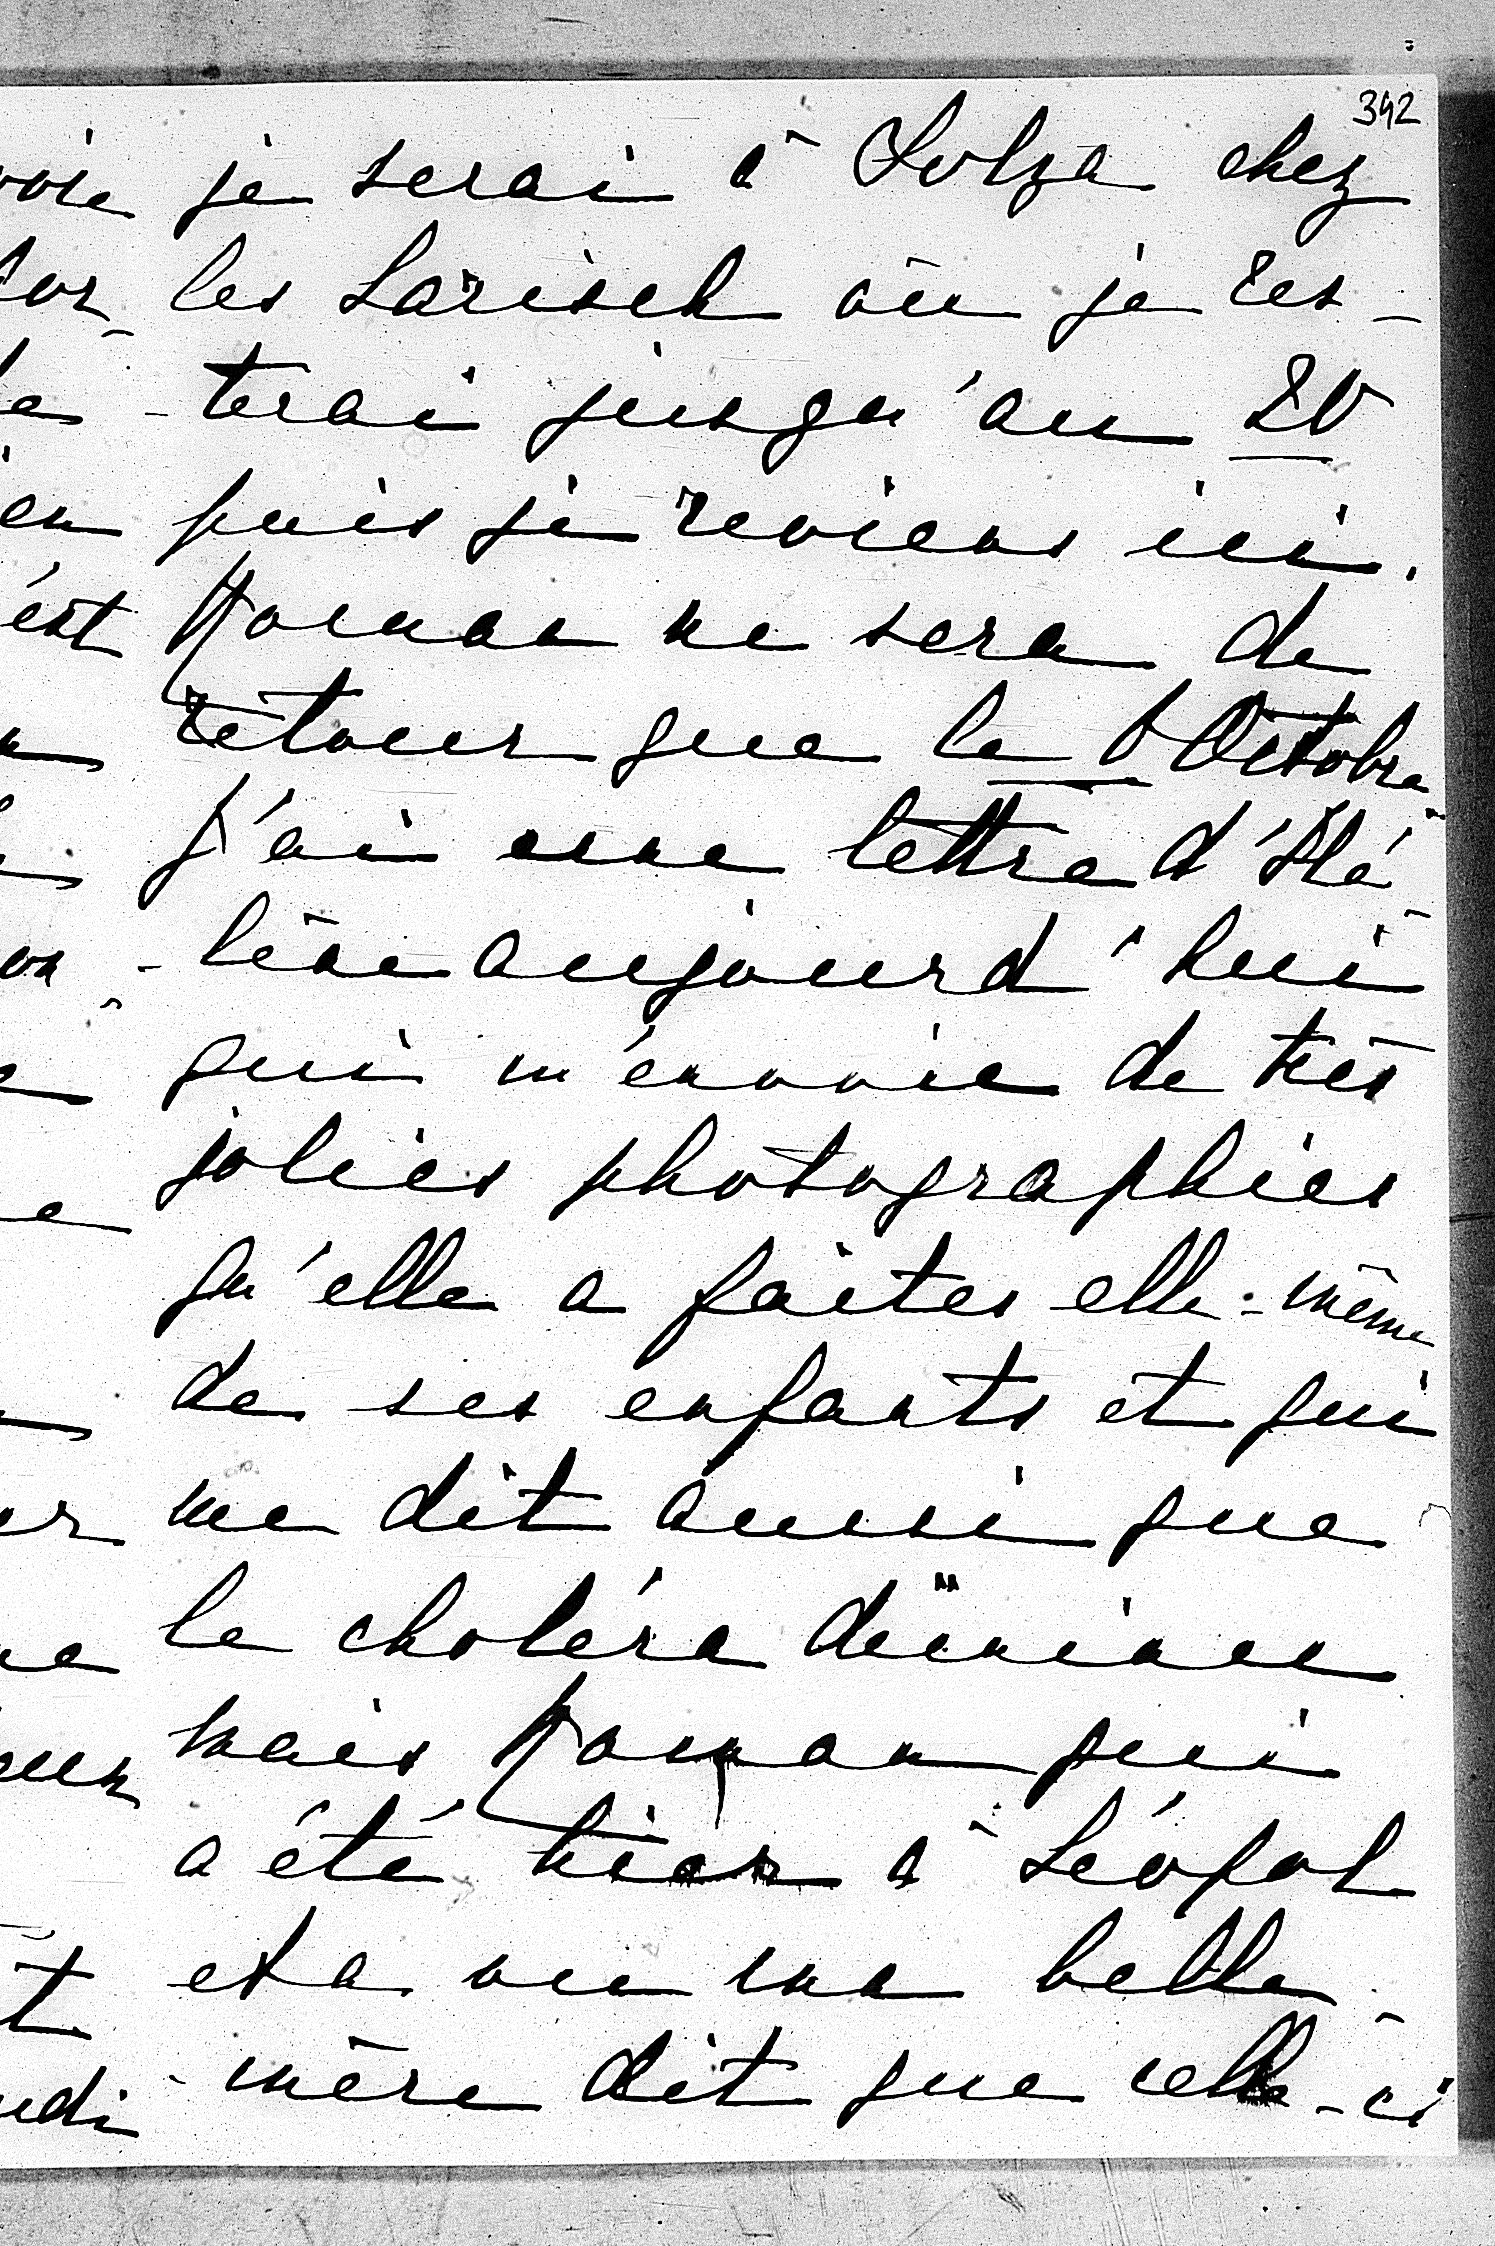 392
je serai à Solza chez
les Larisch où je res-
-terai jusqu'au 20
puis je reviens ici.
Roman ne sera de
retour que le 6 Octobre
J'ai une lettre d'Hé-
-lène aujourd'hui
qui m'envoie de très
jolies photographies
qu'elle a faites elle-même
de ses enfants et qui
me dit aussi que
le choléra diminue
mais Roman qui
a été hier à Léopol
et a vu ma belle-
-mère dit que celle-ci